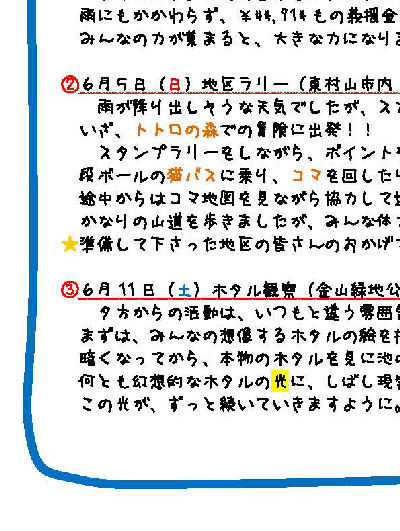 雨にもかかわらず、¥44,914もの義援金
みんなの力が集まると、大きな力になりま
②6月5日（日）地区ラリー（東村山市内
雨が降り出しそうな天気でしたが、ス
いざ、トトロの森での冒険に出発！！
スタンプラリーをしながら、ポイント
段ボールの猫バスに乗り、コマを回したり
途中からはコマ地図を見ながら協力して
かなりの山道を歩きましたが、みんな体
★準備して下さった地区の皆さんのおかげ
③6月11日（土）ホタル観察（金山緑地公
夕方からの活動は、いつもと違う雰囲
まずは、みんなの想像するホタルの絵を
暗くなってから、本物のホタルを見に池の
何とも幻想的なホタルの光に、しばし現
この光が、ずっと続いていきますように。